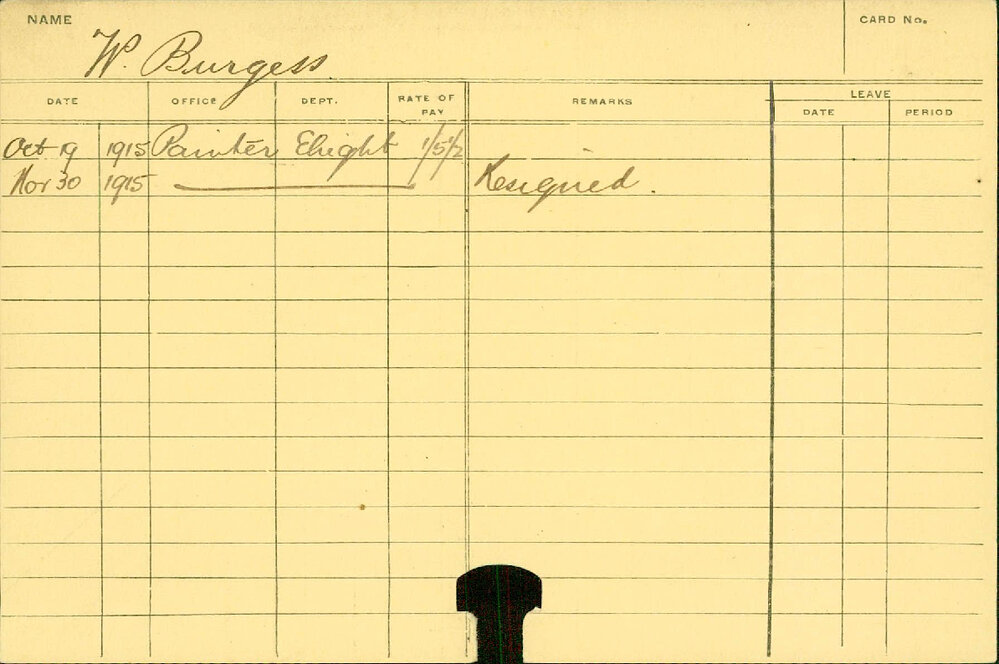 NAME
W. Burgess
CARD No.
DATE OFFICE DEPT. RATE OF PAY REMARKS LEAVE
DATE PERIOD
Oct 19 1915 Painter Elight 1/5½
Nov 30 1915 Resigned.